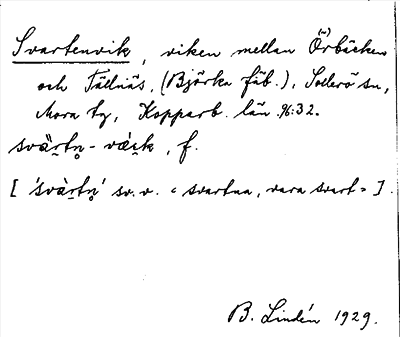 Svartenvik, viken mellan Örbäcken
och Fällnäs, (Björka fäb.), Sollerö sn,
Mora tg, Kopparb. län. 96:32.
svä̀rtn̥ - vǽi̯k, f.
[ 'svä̀rtn̥' sv. v. « svartna, vara svart » ].
B. Lindén 1929.